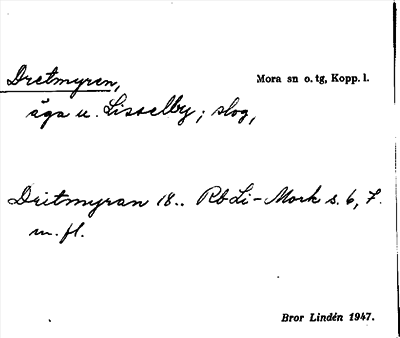 Dretmyren, Mora sn o. tg, Kopp. l.
äga u. Lisselby; slog,
Dritmyran 18.. RbLi-Mork s. 6, 7.
m. fl.
Bror Lindén 1947.